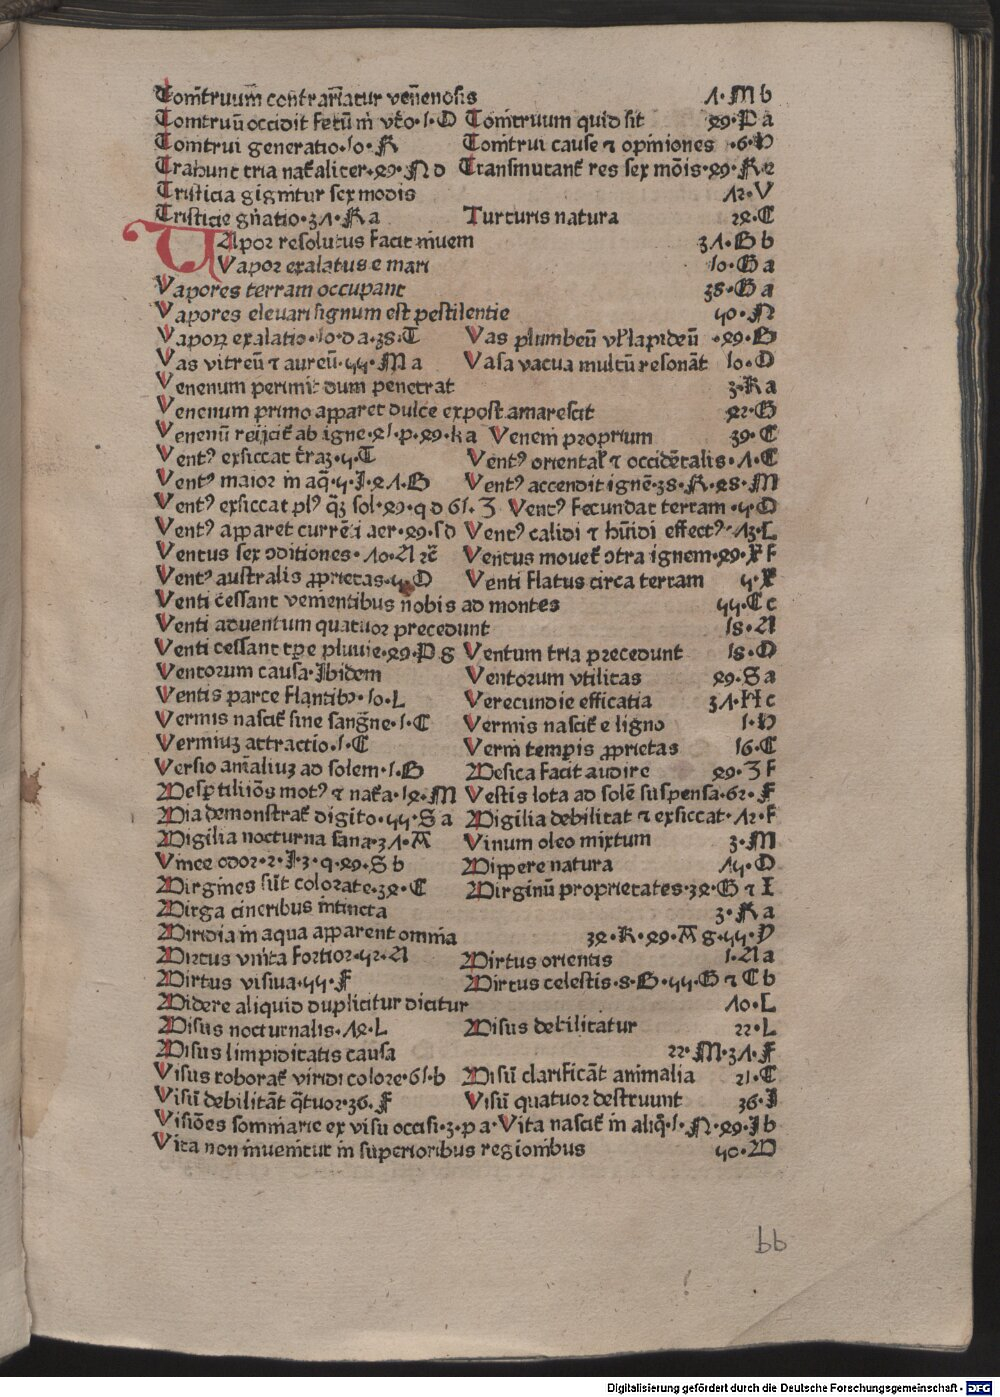 Tonītruum̄ contrariatur venenosis 1·M b
Tonitruū occidit fetū in vtō·1·O Tonitruum quid sit 29·P a
Tonitrui generatio·10·R Tonitrui cause ⁊ opiniones ·6·P
Trahunt tria nat̄aliter·29·N d Transmutant̄ res sex mōis·29·R e
Tristicia gignitur sex modis 12·V
Tristicie gn̄atio·31·R a Turturis natura 22·C
VApor resolutus facit niuem 31·B b
Vapor exalatus e mari 10·G a
Vapores terram occupant 38·G a
Vapores eleuari signum est pestilentie 50·N
Vaporꝝ exalatio·10·d a·38·T Vas plumbeū vł lapideū ·29·B
Vas vitreū ⁊ aureū·55·M a Vasa vacua multū resonāt 10·O
Venenum perimit dum penetrat 3·K a
Venenum primo apparet dulce expost amarescit 22·G
Venenū reijcit̄ ab igne·21·p·29·k a Veneni proprium 39·C
Ventꝰ exsiccat t̄raꝫ·5·T Ventꝰ oriental̄ ⁊ occidētalis·1·C
Ventꝰ maior in aq̄·5·I·21·B Ventꝰ accendit ignē·38·R·28·M
Ventꝰ exsiccat plꝰ q̄ꝫ sol·29·q d 61·Z Ventꝰ fecundat terram·5·O
Ventꝰ apparet currēti aer·29·s d Ventꝰ calidi ⁊ hūidi effectꝰ·13·L
Ventus sex ↄditiones·10·A ⁊c̄ Ventus mouet̄ ↄtra ignem·29·X f
Ventꝰ australis ꝓprietas·5·O Venti flatus circa terram 5·X
Venti cessant venientibus nobis ad montes 55·C c
Venti aduentum quatuor precedunt 18·A
Venti cessant tp̄e pluuie·29·P g Ventum tria precedunt 18·O
Ventorum causa·Ibidem Ventorum vtilitas 29·S a
Ventis parce flantibꝰ·10·L Verecundie efficatia 31·H c
Vermis nascit̄ sine sangne·1·C Vermis nascit̄ e ligno 1·P
Vermiuꝫ attractio·1·C Verni temporis ꝓprietas 16·C
Versio animaliuꝫ ad solem·1·B Vesica facit audire 29·Z f
Vesptiliiōis motꝰ ⁊ nat̄a·12·M Vestis lota ad solē suspensa·62·F
Via demonstrat̄ digito·55·S a Vigilia debilitat ⁊ exsiccat·12·F
Vigilia nocturna sana·31·A Vinum oleo mixtum 3·M
Vince odor·2·I·3·q·29·S b Vippere natura 15·O
Virgines sūt colorate·32·C Virginū proprietates·32·G ⁊ I
Virga cineribus intincta 3·R a
Viridia in aqua apparent omnia 32·K·29·A g·55·Y
Virtus vnita fortior·52·A Virtus orientis 1·A a
Virtus visiua·55·F Virtus celestis·8·B·55·G ⁊ C b
Videre aliquid duplicitur dicitur 10·L
Visus nocturnalis·12·L Visus debilitatur 22·L
Visus limpiditatis causa 22·M·31·F
Visus roborat̄ viridi colore·61·b Visū clarificāt animalia 21·C
Visū debilitāt q̄tuor·36·F Visū quatuor destruunt 36·I
Visiōes sommarie ex visu occisi·3·p a·Vita nascit̄ in aliq̄·1·N·29·I b
Vita non inuenitur in superioribus regionibus 50·D
bb
Digitalisierung gefördert durch die Deutsche Forschungsgemeinschaft - DFG